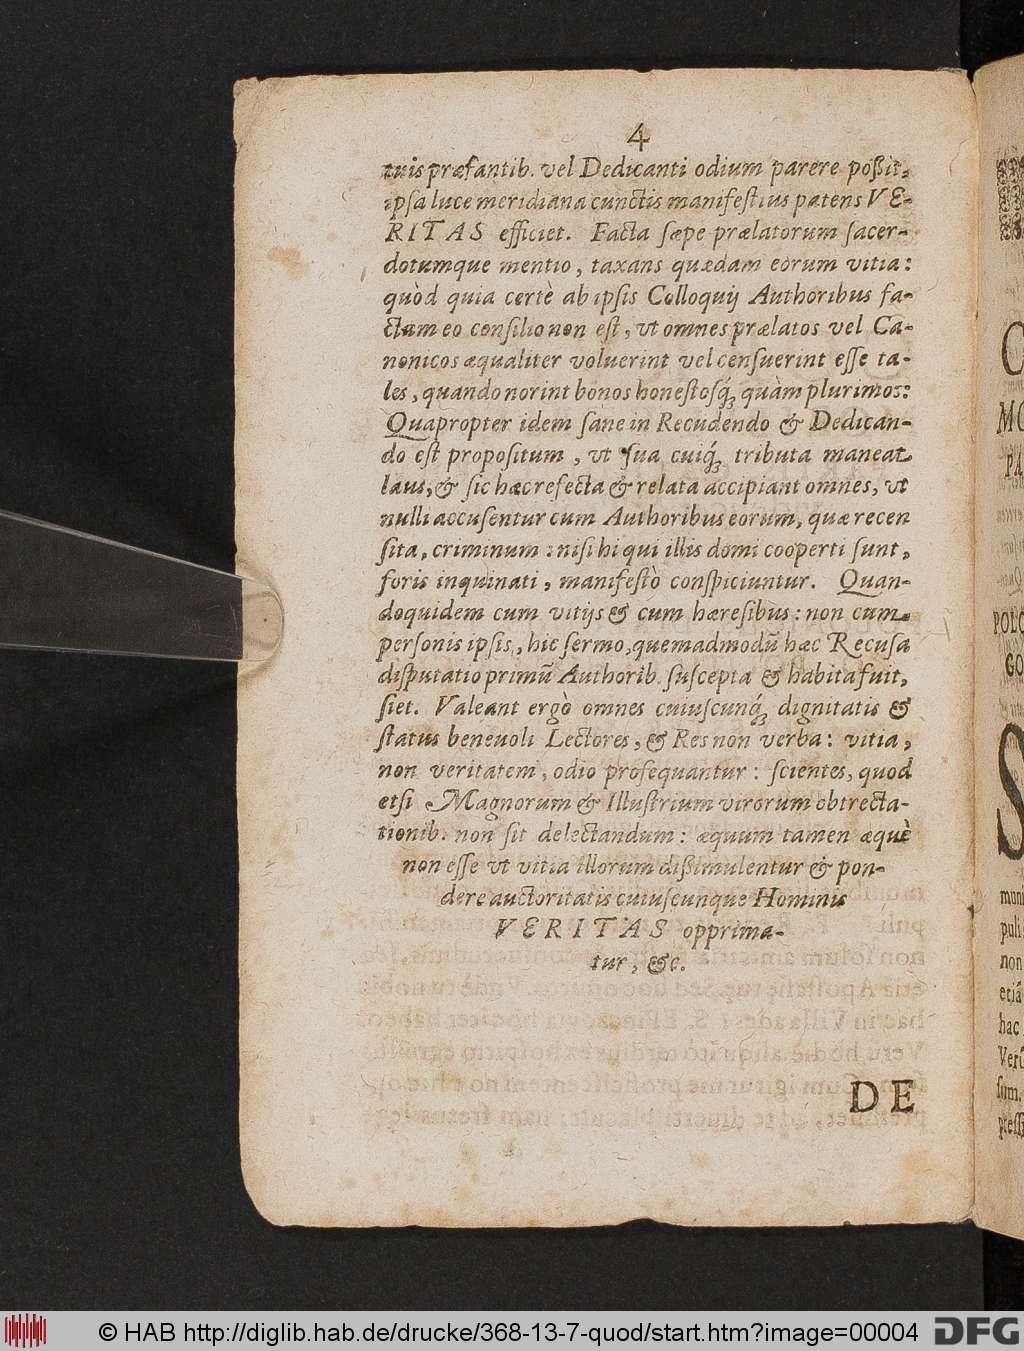 4
tuis præfantib. vel Dedicanti odium parere poßit,
ipsa luce meridiana cunctis manifestius patens VE-
RITAS efficiet. Facta sæpe prælatorum sacer-
dotumque mentio, taxans quædam eorum vitia:
quòd quia certè ab ipsis Colloquij Authoribus fa-
ctum eo consilio non est, vt omnes prælatos vel Ca-
nonicos æqualiter voluerint vel censuerint esse ta-
les, quando norint bonos honestosq́; quàm plurimos:
Quapropter idem sane in Recudendo & Dedican-
do est propositum, vt sua cuiq́; tributa maneat
laus, & sic hæc refecta & relata accipiant omnes, vt
nulli accusentur cum Authoribus eorum, quæ recen
sita, criminum: nisi hi qui illis domi cooperti sunt,
foris inquinati, manifestò conspiciuntur. Quan-
doquidem cum vitijs & cum hæresibus: non cum
personis ipsis, hic sermo, quemadmodū hæc Recusa
disputatio primū Authorib. suscepta & habita fuit,
siet. Valeant ergò omnes cuiuscunq́; dignitatis &
status beneuoli Lectores, & Res non verba: vitia,
non veritatem, odio prosequantur: scientes, quod
etsi Magnorum & Illustrium virorum obtrecta-
tionib. non sit delectandum: æquum tamen æquè
non esse vt vitia illorum dißimulentur & pon-
dere auctoritatis cuiuscunque Hominis
VERITAS opprima-
tur, &c.
DE
© HAB http://diglib.hab.de/drucke/368-13-7-quod/start.htm?image=00004
DFG